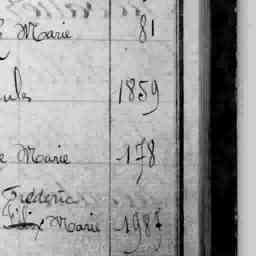 Marie 81
ules 1859
e Marie 178
Frédéric
Félix Marie 1987